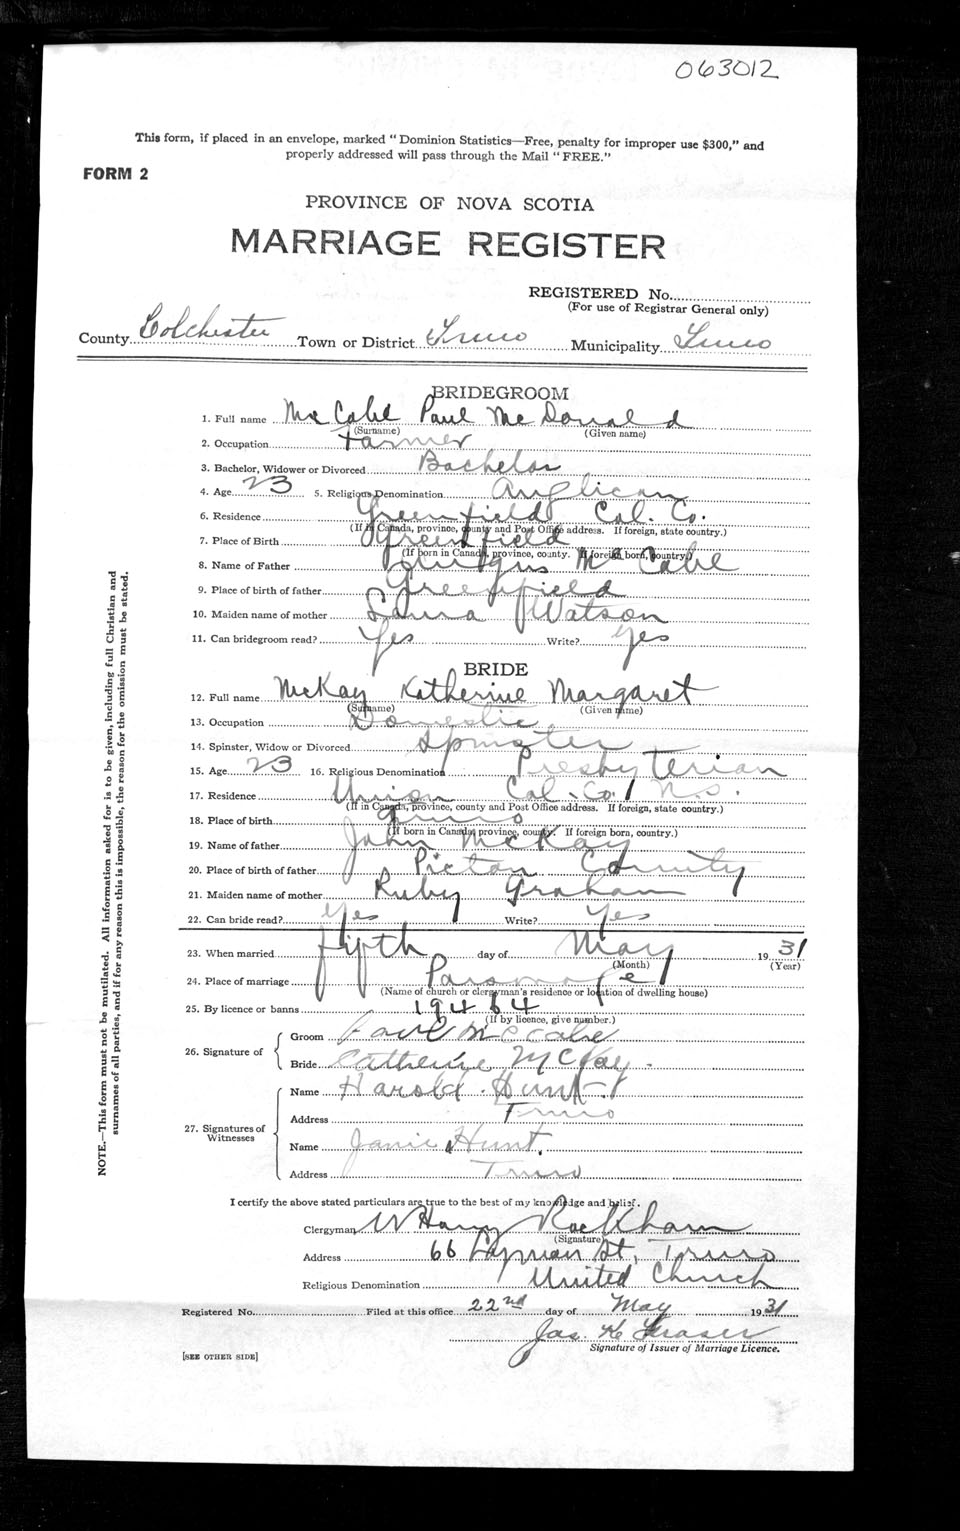 063012
This form, if placed in an envelope, marked "Dominion Statistics—Free, penalty for improper use $300," and
properly addressed will pass through the Mail "FREE."
FORM 2
PROVINCE OF NOVA SCOTIA
MARRIAGE REGISTER
REGISTERED No.
(For use of Registrar General only)
County Colchester Town or District Truro Municipality Truro
BRIDEGROOM
1. Full name McCabe Paul McDonald
(Surname) (Given name)
2. Occupation Farmer
3. Bachelor, Widower or Divorced Bachelor
4. Age 23 5. Religious Denomination Anglican
6. Residence Greenfield Col. Co.
(If in Canada, province, county and Post Office address. If foreign, state country.)
7. Place of Birth Greenfield
(If born in Canada, province, county. If foreign born, country.)
8. Name of Father McCabe
9. Place of birth of father Greenfield
10. Maiden name of mother Laura Watson
11. Can bridegroom read? Yes Write? Yes
BRIDE
12. Full name McKay Katherine Margaret
(Surname) (Given name)
13. Occupation Domestic
14. Spinster, Widow or Divorced Spinster
15. Age 23 16. Religious Denomination Presbyterian
17. Residence Union Col. Co. N.S.
(If in Canada, province, county and Post Office address. If foreign, state country.)
18. Place of birth Truro
(If born in Canada, province, county. If foreign born, country.)
19. Name of father John McKay
20. Place of birth of father Pictou County
21. Maiden name of mother Ruby Graham
22. Can bride read? Yes Write? Yes
23. When married fifth day of May 1931
(Month) (Year)
24. Place of marriage Parsonage
(Name of church or clergyman's residence or location of dwelling house)
25. By licence or banns 19464
(If by licence, give number.)
26. Signature of
Groom Paul McCabe
Bride Catherine McKay.
27. Signatures of Witnesses
Name Harold Hunt
Address Truro
Name Janie Hunt.
Address Truro
I certify the above stated particulars are true to the best of my knowledge and belief.
Clergyman W Harry Rackham
(Signature)
Address 66 Lyman St., Truro
Religious Denomination United Church
Registered No. Filed at this office 22nd day of May 1931
Jas. K Fraser
Signature of Issuer of Marriage Licence.
[SEE OTHER SIDE]
NOTE.—This form must not be mutilated. All information asked for is to be given, including full Christian and
surnames of all parties, and if for any reason this is impossible, the reason for the omission must be stated.